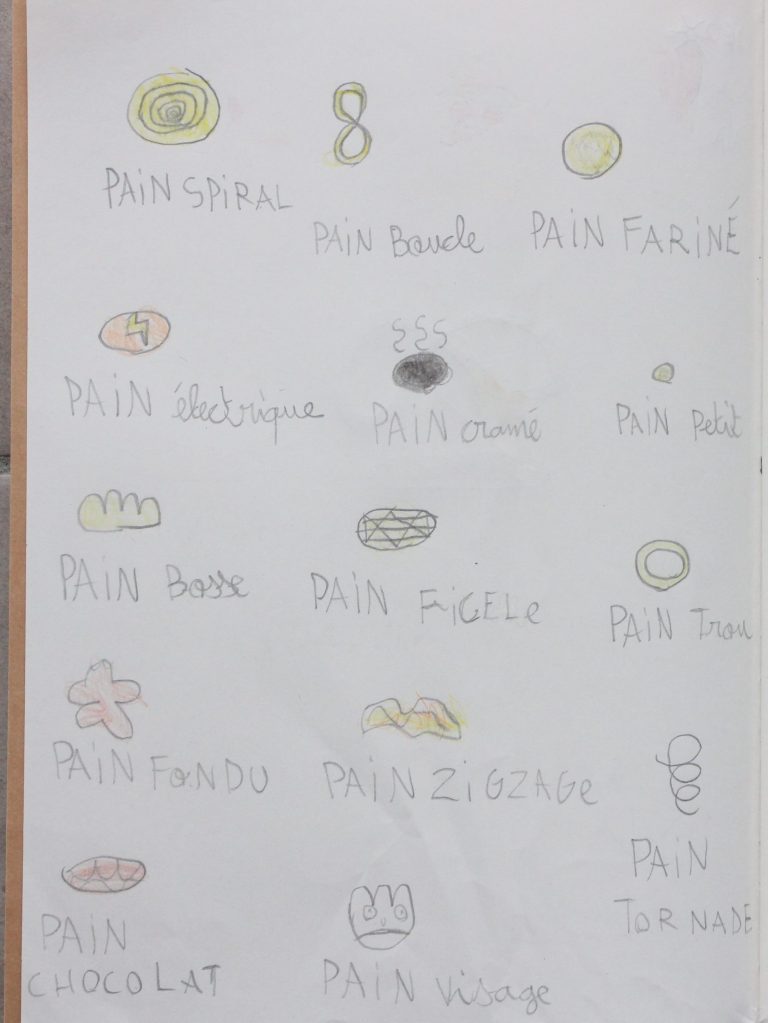 PAiN SPiRAL
PAiN Boucle
PAiN FARiNÉ
PAiN électrique
PAiN cramé
PAiN Petit
PAiN Bosse
PAiN FiCELe
PAiN Trou
PAiN FoNDU
PAiN ZiGZAGe
PAiN
TORNADE
PAiN
CHOCOLAT
PAiN Visage